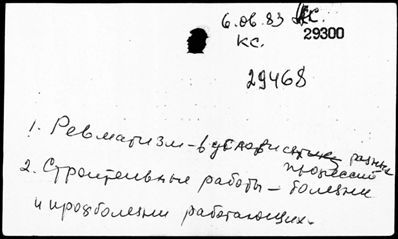 6.06.83 кс.
кс. 29300
29468
1. Ревматизм - в разных профессий
2. Строительные работы - болезни
и профболезни работающих.